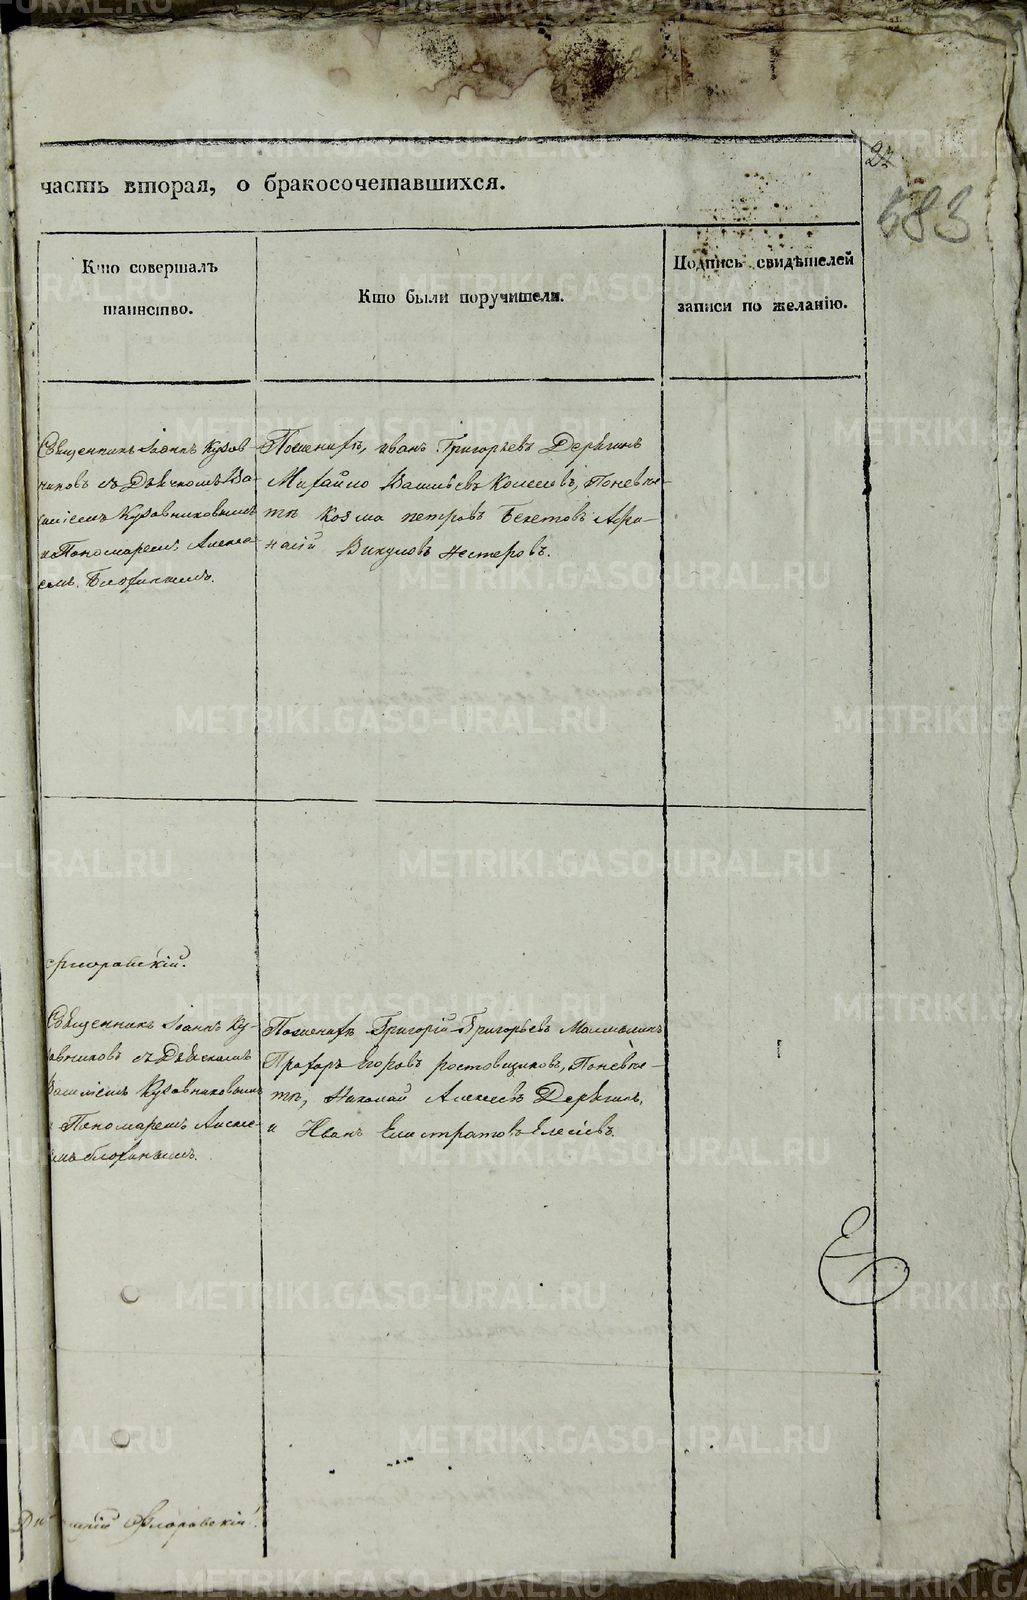 27
583
часть вторая, о бракосочетавшихся.
Кто совершалъ
таинство.
Кто были поручители.
Подпись свидѣтелей
записи по желанію.
Священникъ Іоаннъ Кузов-
никовъ съ Дьячкомъ Ва-
силіемъ Кузовниковымъ
и Пономаремъ Алексѣ-
емъ
Поженихѣ, иванъ Григорьевъ Дерягинъ
Михайло Васильевъ Колесовъ, Поневѣс-
тѣ Козма петровъ Бекетовъ Афа-
насій Викуловъ нестеровъ.
флоровскій.
Священникъ Іоаннъ Ку-
зовниковъ съ Дьячкомъ
Василіемъ Кузовниковымъ
и Пономаремъ Алексѣ-
емъ
Поженихѣ Григорій Григорьевъ
Прохоръ Егоровъ ростовщиковъ, Поневѣс-
тѣ, Николай Алексѣевъ Дерягинъ,
и Иванъ Елистратовъ
Флоровскій.
METRIKI.GASO-URAL.RU